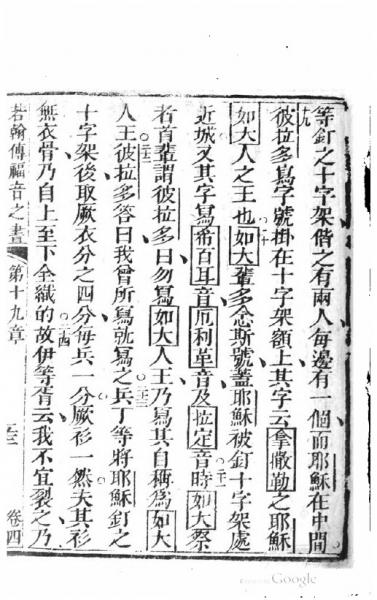 等釘之十字架偕之有兩人每邊有一個而耶穌在中間
十九彼拉多寫字號掛在十字架額上其字云拿撒勒之耶穌
如大人之王也二十如大輩多念斯號蓋耶穌被釘十字架處
近城又其字寫希百耳音厄利革音及拉定音時二十一如大祭
者首輩謂彼拉多曰勿寫如大人王乃寫其自稱為如大
人王二十二彼拉多答曰我曾所寫就寫之二十三兵丁等將耶穌釘之
十字架後取厥衣分之四分每兵一分厥衫一然夫其衫
無衣骨乃自上至下全織的故二十四伊等胥云我不宜裂之乃
若翰傳福音之書 第十九章 卷四
Google